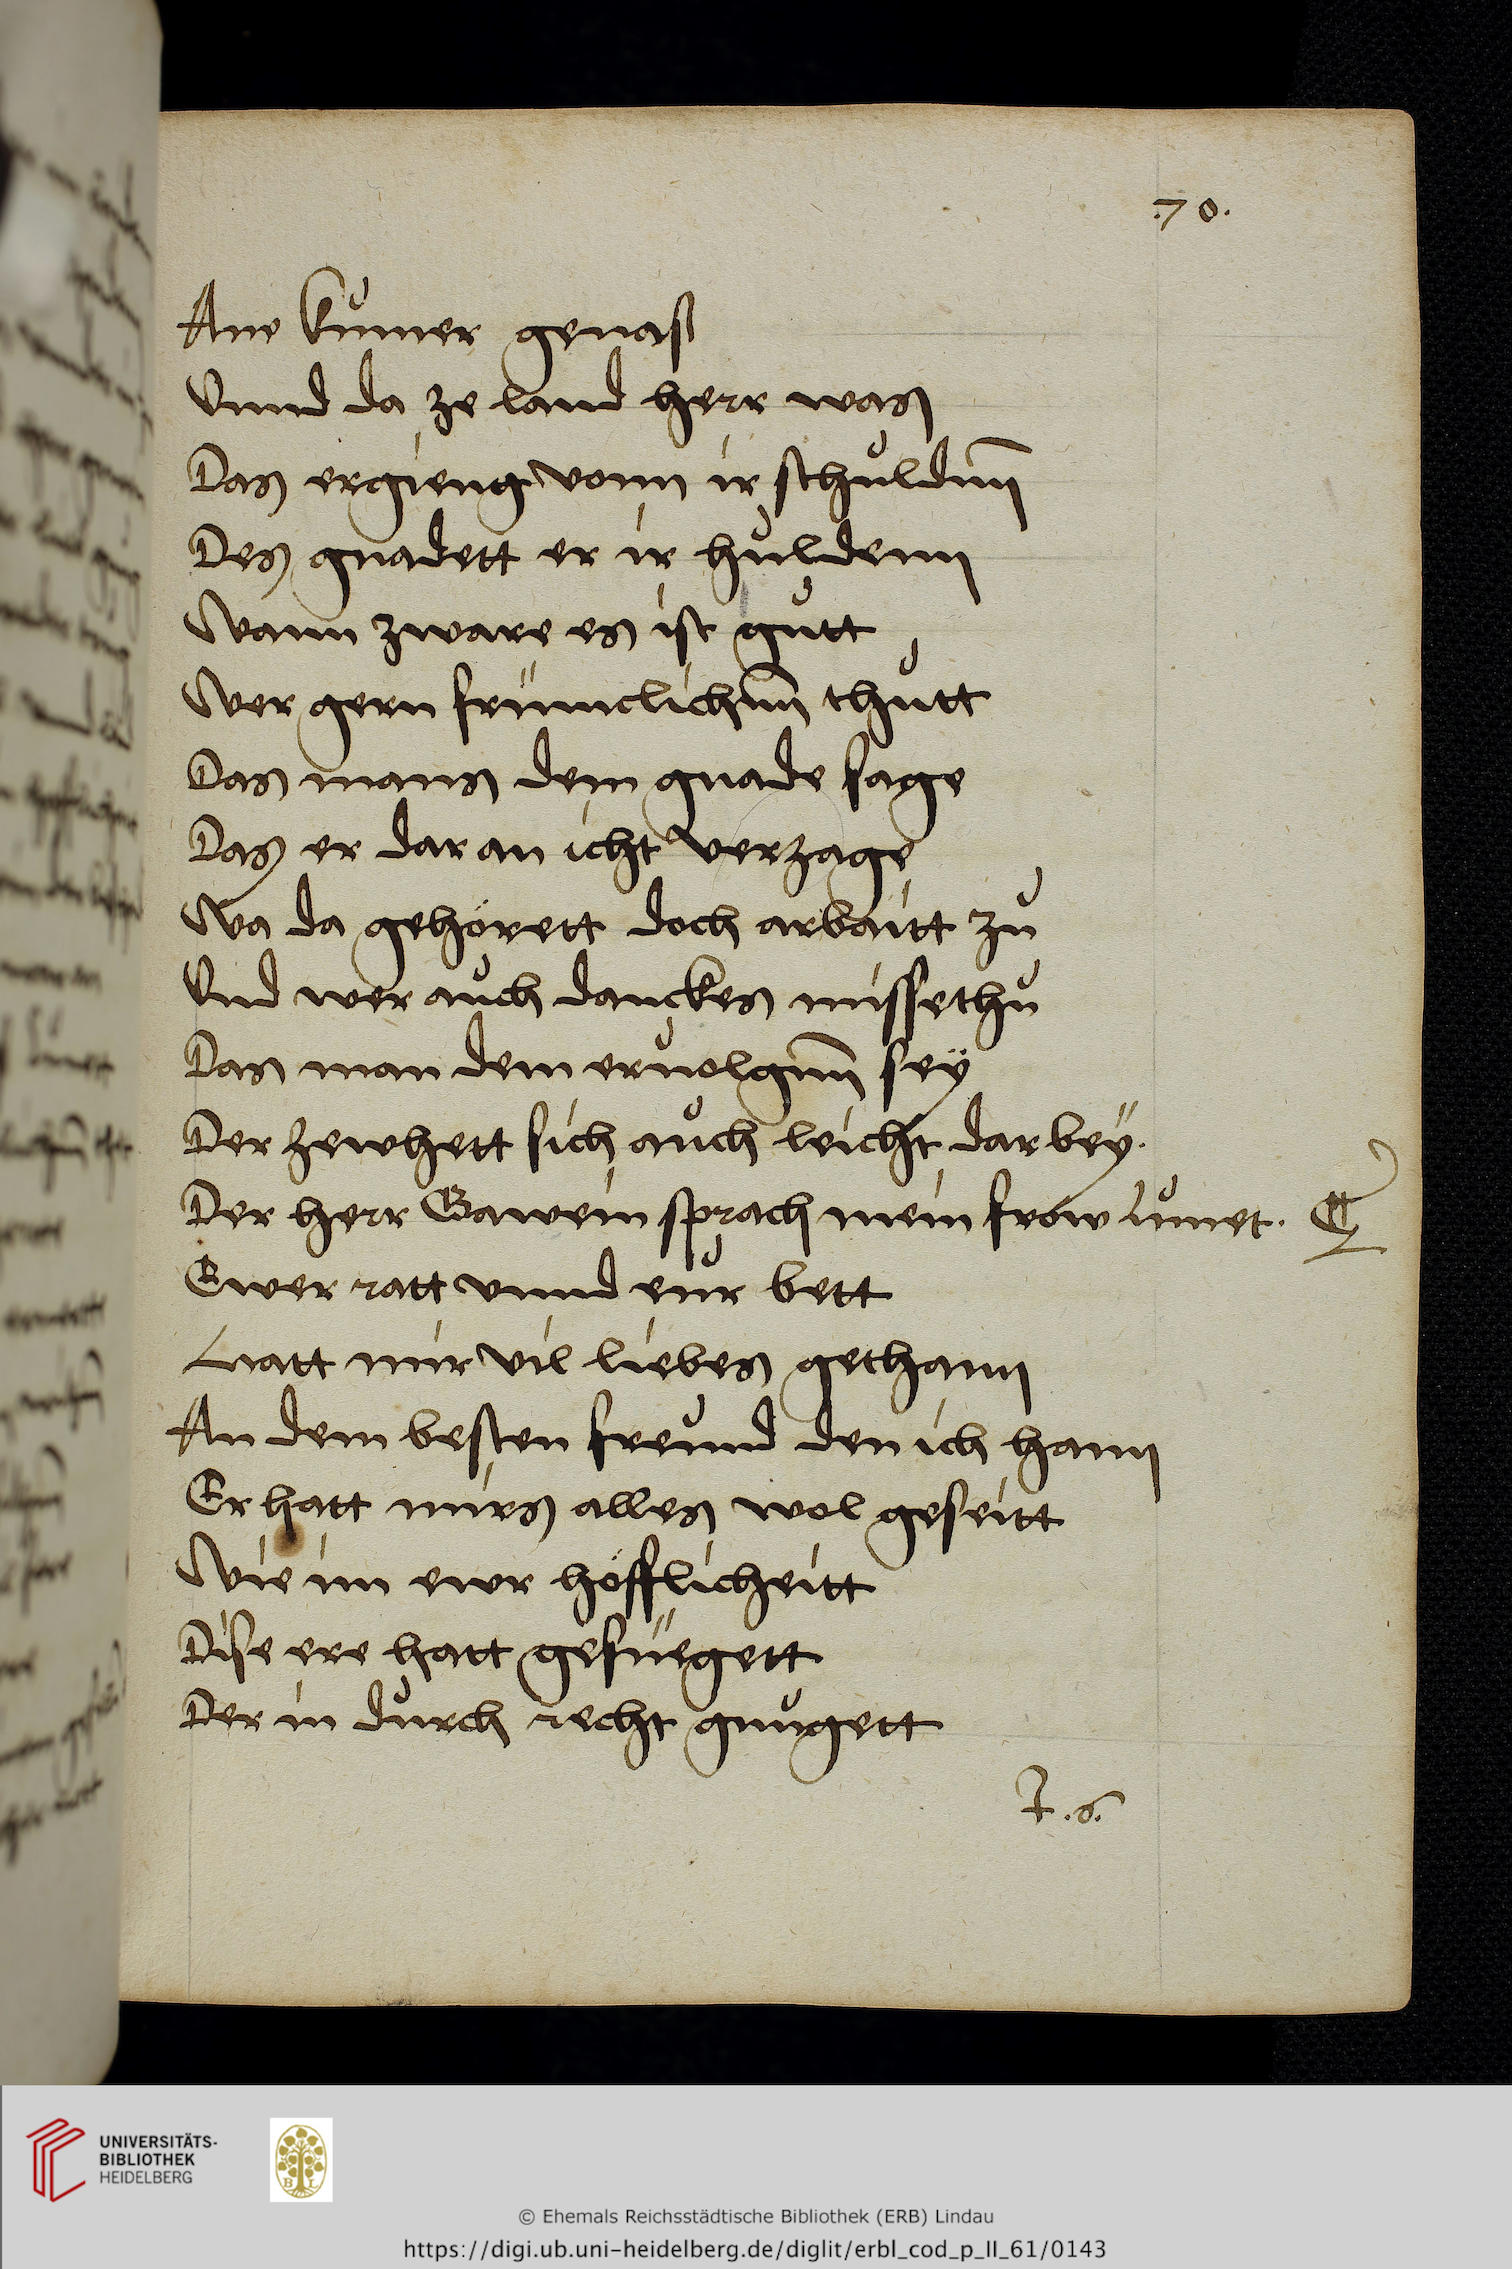 .70.
Ane kumer genaß
Vnnd da ze land herr was
Das ergieng vonn ir schuldenn
Des gnadett er ir huldenn
Wann zware es ist gutt
Wer gern frümclichenn thutt
Das mans dem gnade sage
Das er dar an icht verzage
Wa da gehörett doch arbaitt zu
Vnd wer auch danckes missethu
Das man dem eruolgenn seÿ
Der zewhett sich auch leicht dar beÿ.
Der herr Gawein sprach mein frow lunet.
Ewer ratt vnnd eur bett
Hatt mir vil liebes gethann
An dem besten freund den ich hann
Er hatt mirs alles wol geseitt
Wie im ewr höfflicheitt
Dise ere hatt gefüegett
Der in durch recht gnugett
J.6.
UNIVERSITÄTS-
BIBLIOTHEK
HEIDELBERG
B L
© Ehemals Reichsstädtische Bibliothek (ERB) Lindau
https://digi.ub.uni-heidelberg.de/diglit/erbl_cod_p_II_61/0143